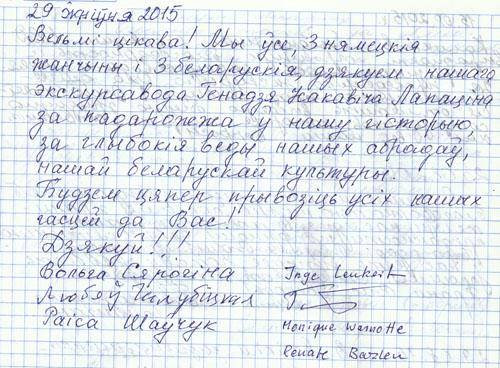 29 жніўня 2015
Вельмі цікава! Мы ўсе, 3 нямецкія
жанчыны і 3 беларускія, дзякуем нашага
экскурсавода Генадзя Ісакавіча Лапаціна
за падарожжа у нашу гісторыю,
за глыбокія веды нашых абрадаў,
нашай беларускай культуры.
Будзем цяпер прывозіць усіх нашых
гасцей да Вас!
Дзякуй!!!
Вольга Сярогіна Inge Lenkert
Любоў
Раіса Шаўчук Monique
Renate